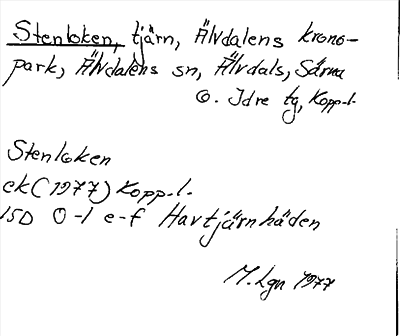 Stenloken, tjärn, Älvdalens krono-
park, Älvdalens sn, Älvdals, Särna
o. Idre tg, Kopp.l.
Stenloken
ek (1977) Kopp.l.
15D 0-1 e-f Havtjärnhäden
M.Lgn 1977